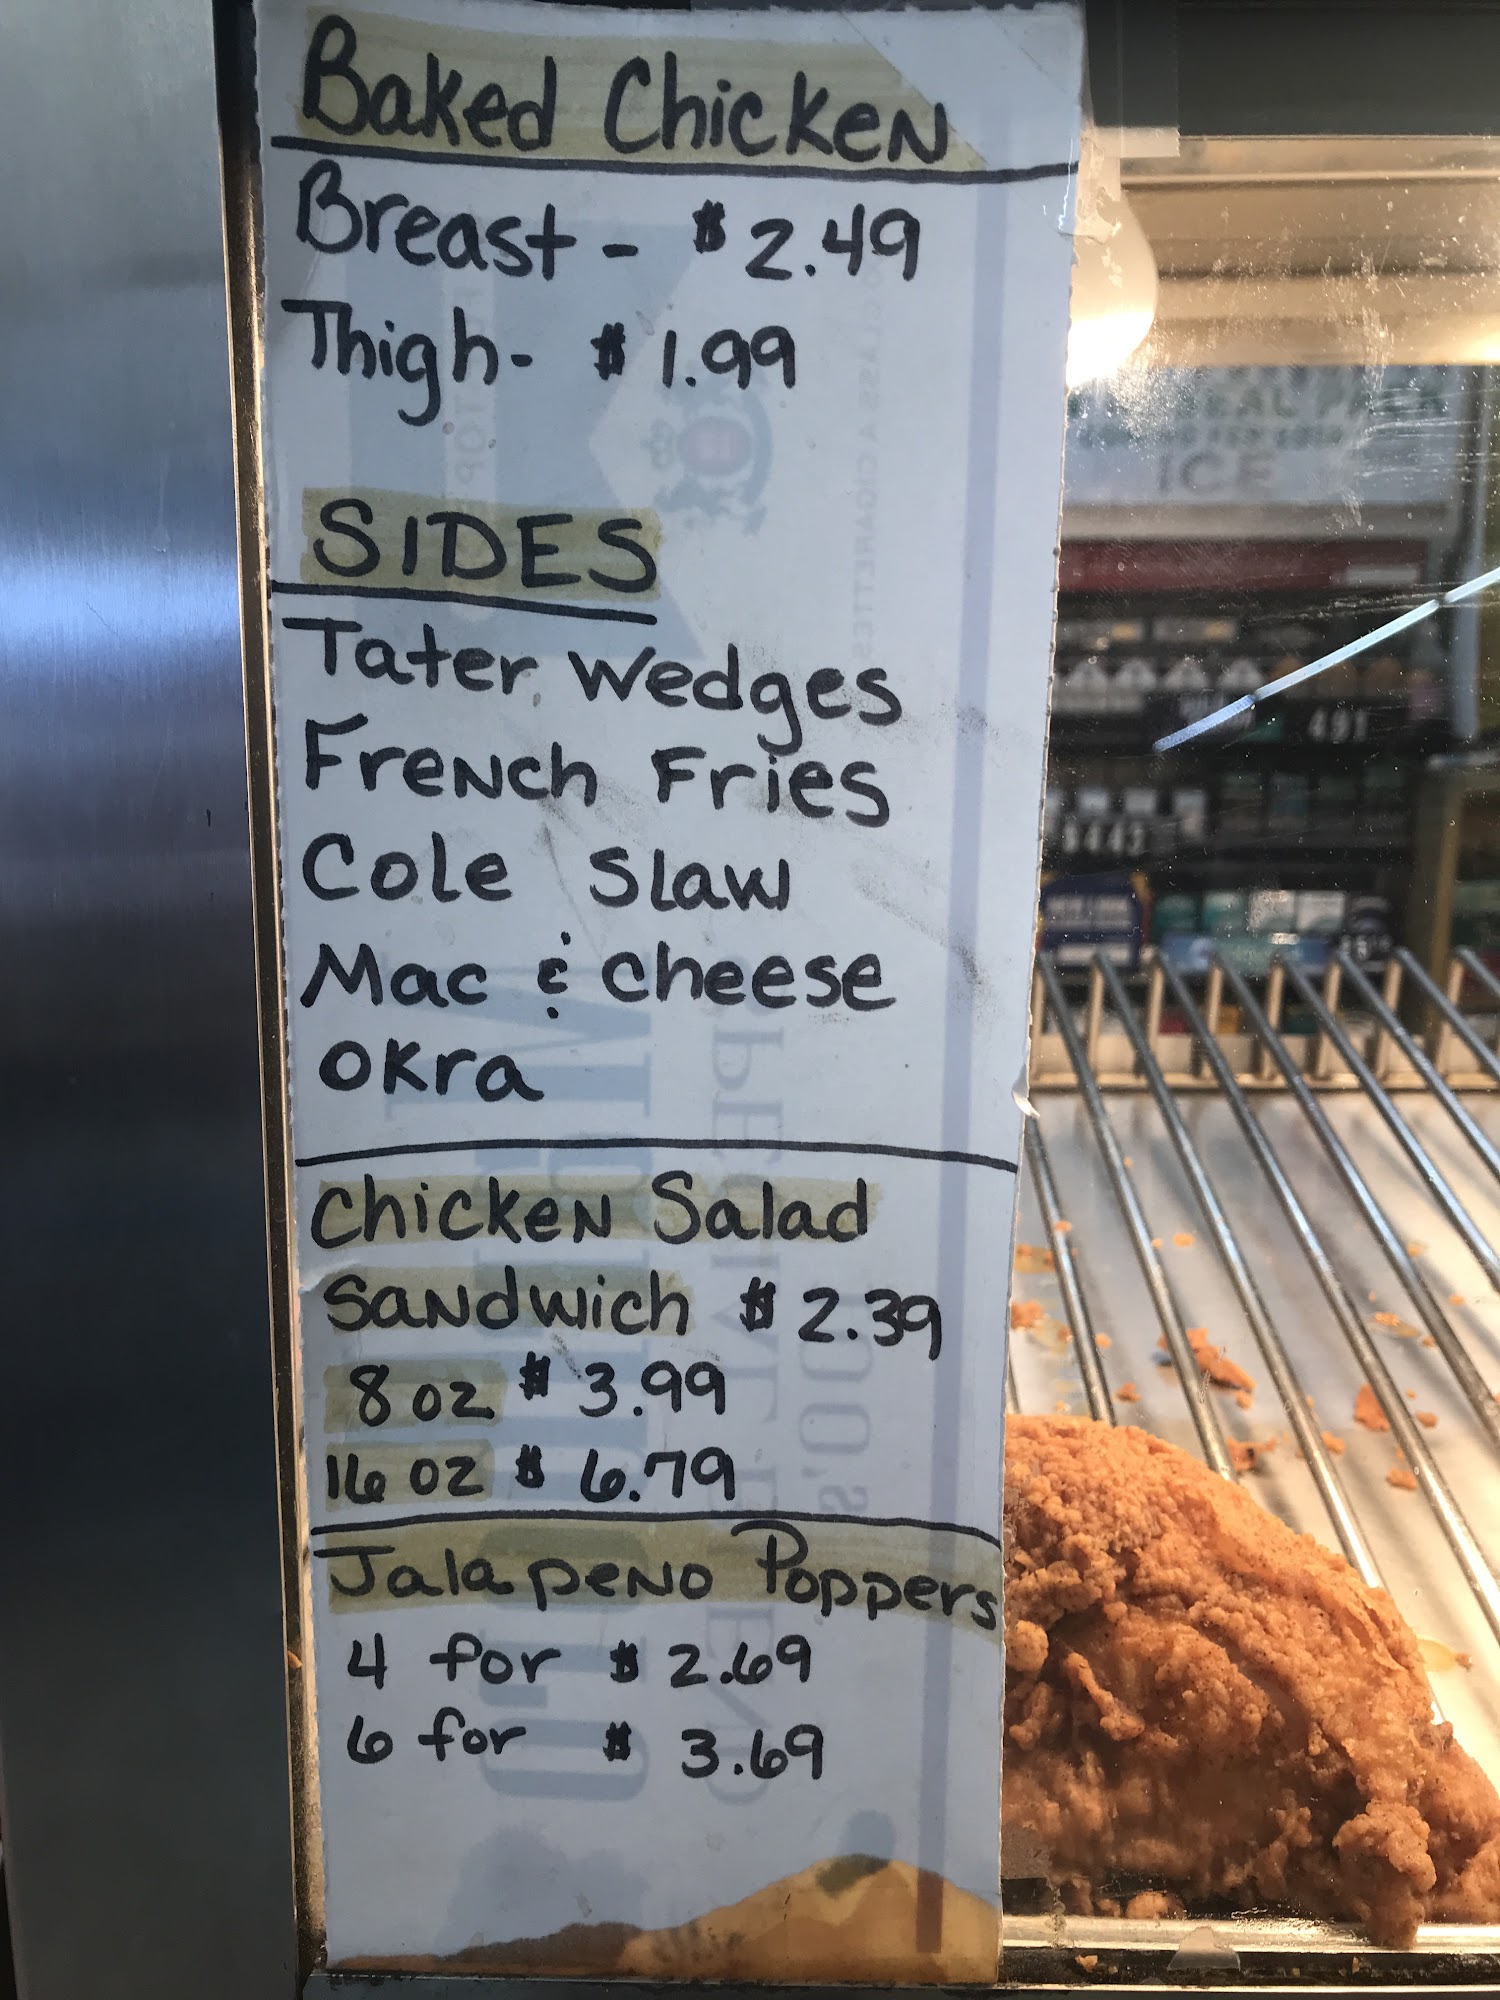 Baked Chicken
Breast - $2.49
Thigh- $1.99
SIDES
Tater Wedges
French Fries
Cole Slaw
Mac & Cheese
Okra
Chicken Salad
Sandwich $2.39
8 oz $3.99
16 oz $6.79
Jalapeno Poppers
4 for $2.69
6 for $3.69
ICE
491